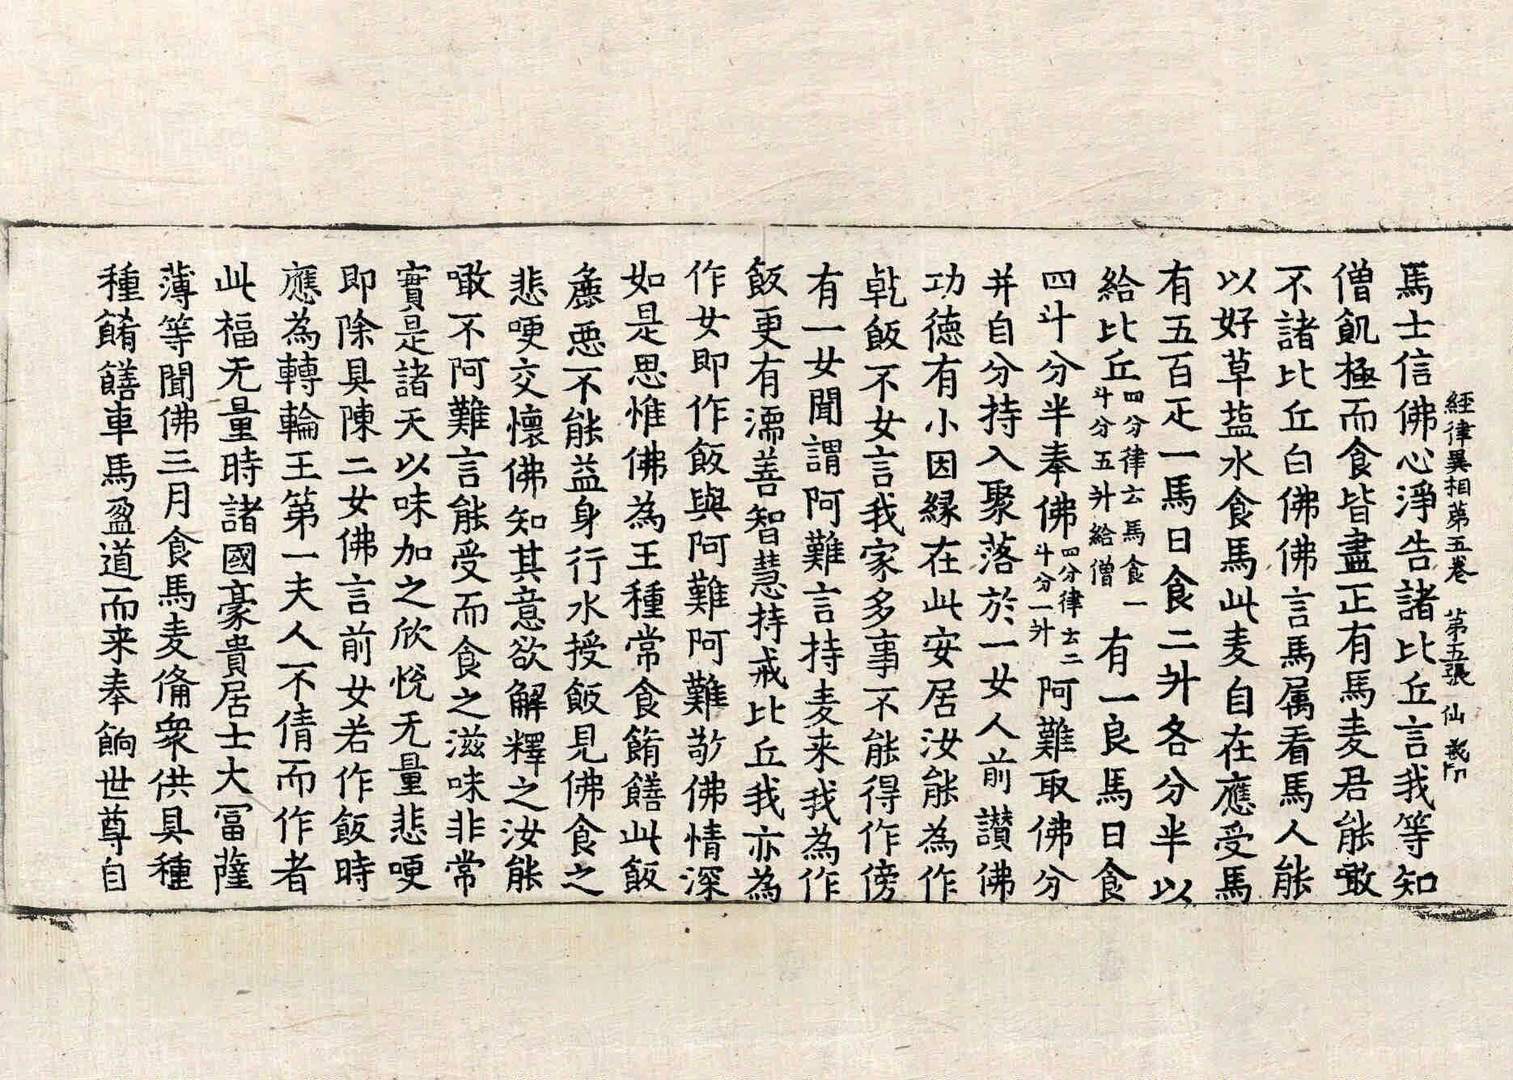 經律異相第五卷　第五張　仙
馬士信佛心淨告諸比丘言我等知
僧飢極而食皆盡正有馬麦君能噉
不諸比丘白佛佛言馬属看馬人能
以好草盐水食馬此麦自在應受馬
有五百疋一馬日食二升各分半以
給比丘四分律云馬食一斗分五升給僧有一良馬日食
四斗分半奉佛四分律云二斗分一升阿難取佛分
并自分持入聚落於一女人前讃佛
功德有小因縁在此安居汝能為作
乹飯不女言我家多事不能得作傍
有一女聞謂阿難言持麦来我為作
飯更有濡善智慧持戒比丘我亦為
作女即作飯與阿難阿難敬佛情深
如是思惟佛為王種常食餚饍此飯
麁悪不能益身行水授飯見佛食之
悲哽交懷佛知其意欲解釋之汝能
噉不阿難言能受而食之滋味非常
實是諸天以味加之欣悅无量悲哽
即除具陳二女佛言前女若作飯時
應為轉輪王第一夫人不倩而作者
此福无量時諸國豪貴居士大冨薩
薄等聞佛三月食馬麦俻衆供具種
種餚饍車馬盈道而来奉餉世尊自